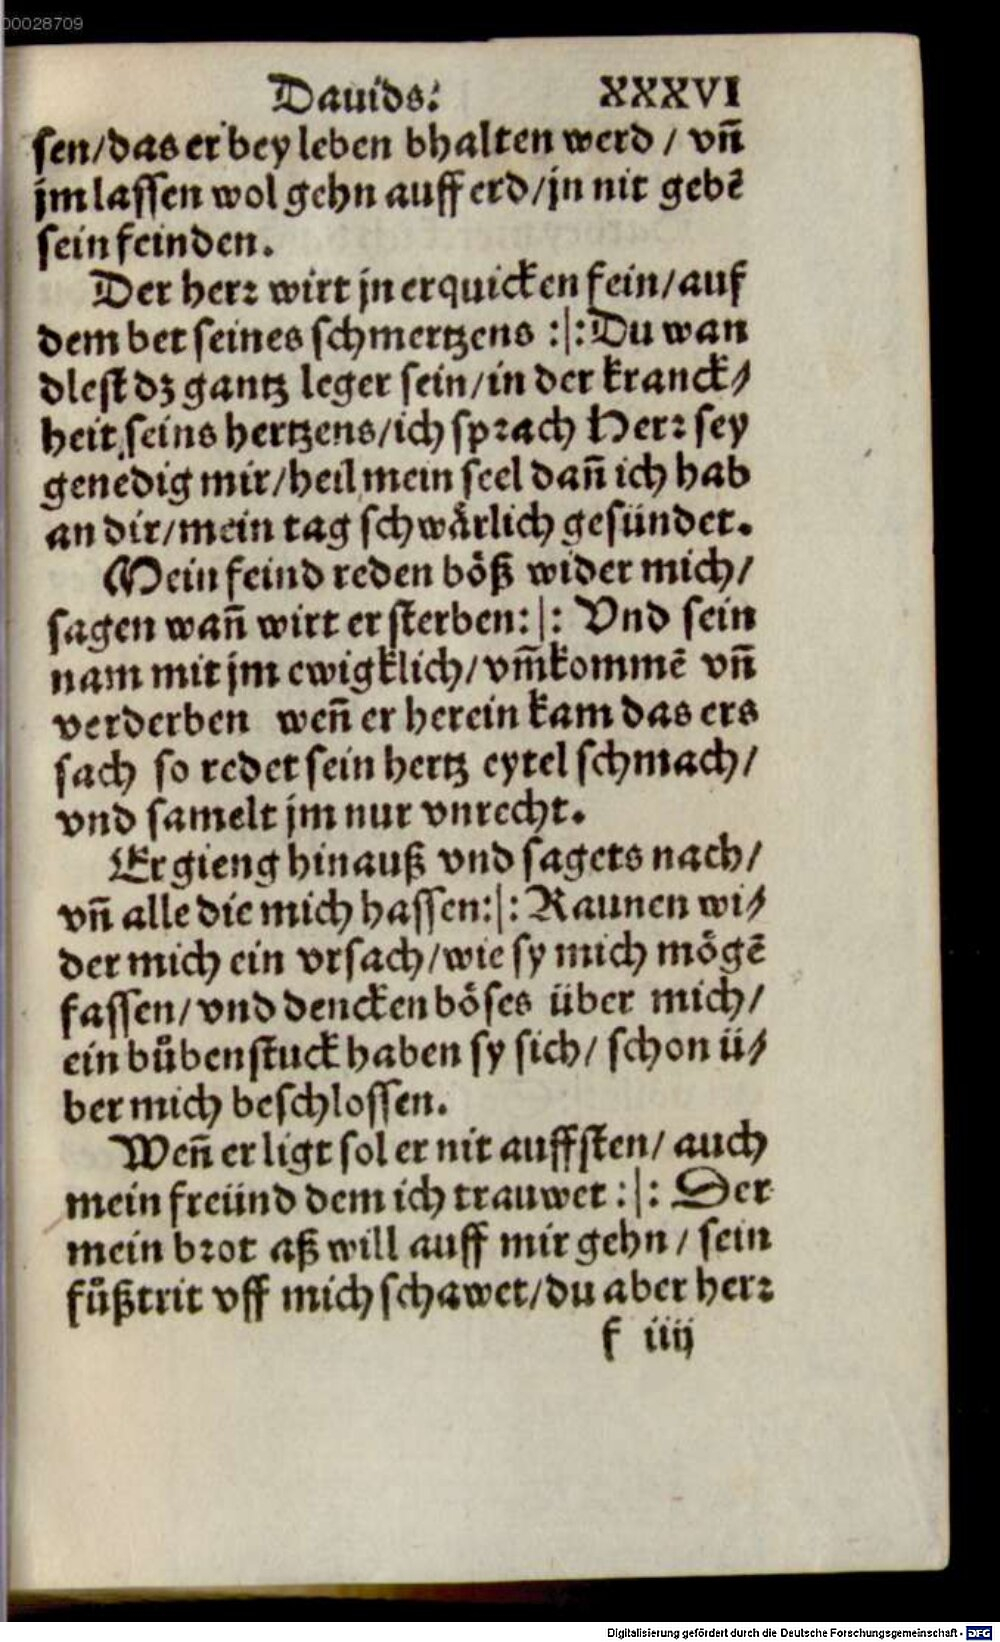 00028709
Dauids. XXXVI
sen/das er bey leben bhalten werd / vñ
jm lassen wol gehn auff erd/jn nit gebē
sein feinden.
Der herr wirt jn erquicken fein/auf
dem bet seines schmertzens :|: Du wan
dlest dz gantz leger sein/in der kranck⸗
heit seins hertzens/ich sprach Herr sey
genedig mir/heil mein seel dañ ich hab
an dir/mein tag schwaͤrlich gesündet.
Mein feind reden boͤß wider mich/
sagen wañ wirt er sterben:|: Vnd sein
nam mit jm ewigklich/vm̃kommē vñ
verderben weñ er herein kam das ers
sach so redet sein hertz eytel schmach/
vnd samelt jm nur vnrecht.
Er gieng hinauß vnd sagets nach/
vñ alle die mich hassen:|: Raunen wi⸗
der mich ein vrsach/wie sy mich moͤgē
fassen/vnd dencken boͤses über mich/
ein bůbenstuck haben sy sich/ schon ü⸗
ber mich beschlossen.
Weñ er ligt sol er nit auffsten/ auch
mein freünd dem ich trauwet :|: Der
mein brot aß will auff mir gehn / sein
fůßtrit vff mich schawet/du aber herr
f iiij
Digitalisierung gefördert durch die Deutsche Forschungsgemeinschaft - DFG